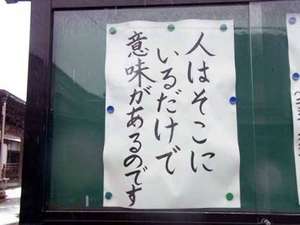 人はそこに
いるだけで
意味があるのです